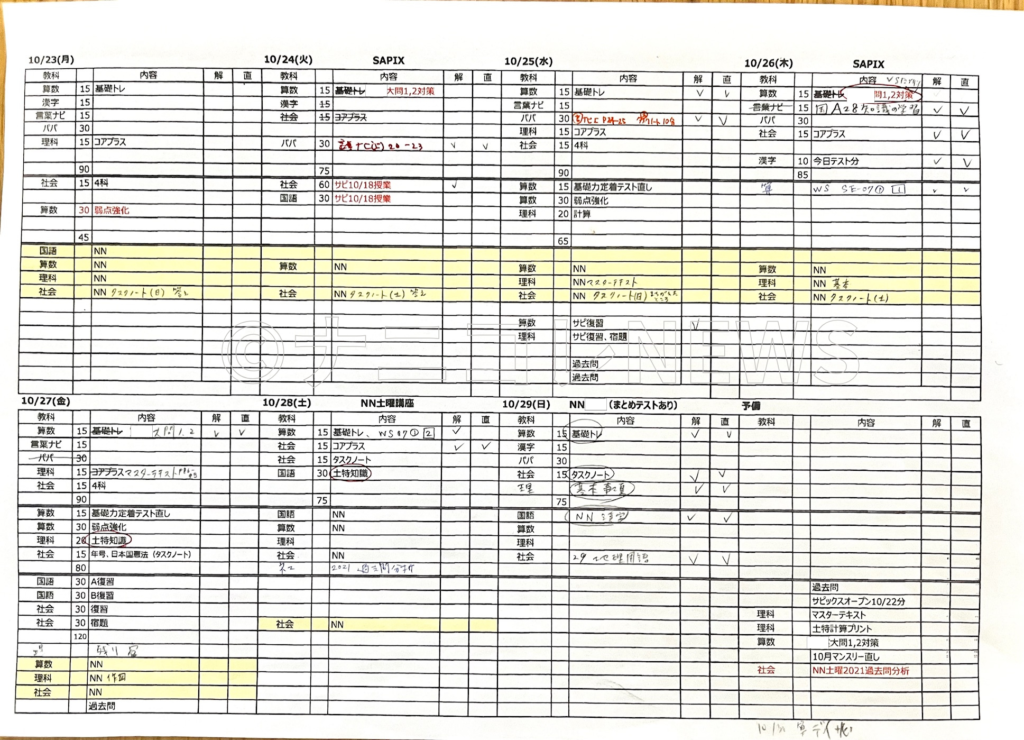 10/23(月)
教科 内容 解 直
算数 15 基礎トレ
漢字 15
言葉ナビ 15
パパ 30
理科 15 コアプラス
90
社会 15 4科
算数 30 弱点強化
45
国語 NN
算数 NN
理科 NN
社会 NN タスクノート(日)
10/24(火) SAPIX
教科 内容 解 直
算数 15 基礎トレ 大問1,2対策
漢字 15
社会 15 コアプラス
パパ 30 20-23 ✓ ✓
75
社会 60 サピ10/18授業 ✓
国語 30 サピ10/18授業
算数 NN
社会 NN タスクノート(土)
10/25(水)
教科 内容 解 直
算数 15 基礎トレ ✓ ✓
言葉ナビ 15
パパ 30 P24-25 ✓ ✓
理科 15 コアプラス
社会 15 4科
90
算数 15 基礎力定着テスト直し
算数 30 弱点強化
理科 20 計算
65
算数 NN
理科 NN マスターテキスト
社会 NN タスクノート(日)
算数 サピ復習 ✓
理科 サピ復習、宿題
過去問
過去問
10/26(木) SAPIX
教科 内容 解 直
算数 15 基礎トレ 問1,2対策
言葉ナビ 15 国A28知識の学習 ✓ ✓
パパ 30
社会 15 コアプラス ✓ ✓
漢字 10 今日テスト分 ✓ ✓
85
算 WS SE-07① 1 ✓ ✓
算数 NN
理科 NN 基本
社会 NN タスクノート(土)
©ナニコレNEWS
10/27(金)
教科 内容 解 直
算数 15 基礎トレ 大問1.2 ✓ ✓
言葉ナビ 15
パパ 30
理科 15 コアプラス マスターテキスト
社会 15 4科
90
算数 15 基礎力定着テスト直し
算数 30 弱点強化
理科 20 土特知識
社会 15 年号、日本国憲法（タスクノート）
80
国語 30 A復習
国語 30 B復習
社会 30 復習
社会 30 宿題
120
残り
算数 NN
理科 NN 作図
社会 NN
過去問
10/28(土) NN土曜講座
教科 内容 解 直
算数 15 基礎トレ、WS 07① 2 ✓
社会 15 コアプラス ✓ ✓
社会 15 タスクノート
国語 30 土特知識
75
国語 NN
算数 NN
理科
社会 NN
2021 過去問分析
社会 NN
10/29(日) NN (まとめテストあり)
教科 内容 解 直
算数 15 基礎トレ ✓ ✓
漢字 15
パパ 30
社会 15 タスクノート ✓ ✓
理 基本事項 ✓ ✓
75
国語 NN 漢字 ✓ ✓
算数
理科
社会 29 地理用語 ✓ ✓
予備
教科 内容 解 直
過去問
サピックスオープン10/22分
理科 マスターテキスト
理科 土特計算プリント
算数 大問1,2対策
10月マンスリー直し
社会 NN土曜2021過去問分析